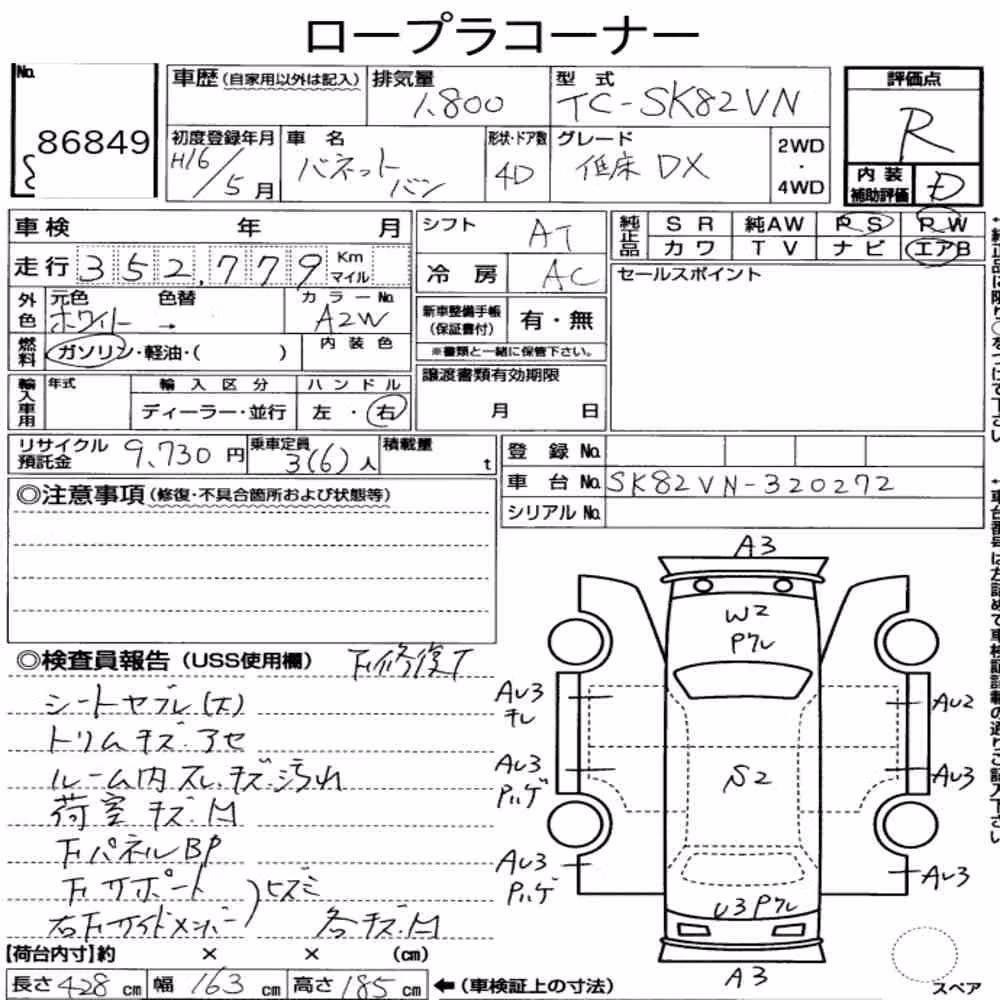 ロープラコーナー
No.
86849
車歴 (自家用以外は記入)
排気量
1,800
型式
TC-SK82VN
評価点
R
初度登録年月
H16/5月
車名
バネットバン
形状・ドア数
4D
グレード
低床 DX
2WD
・
4WD
内装
補助評価
D
車検 年 月
シフト
AT
純正品
SR 純AW PS PW
カワ TV ナビ エアB
走行 352,779 Km
マイル
冷房
AC
セールスポイント
外色
元色 色替
ホワイト →
カラーNo.
A2W
新車整備手帳
(保証書付)
有・無
※書類と一緒に保管下さい。
燃料
ガソリン・軽油・( )
内装色
輸入車用
年式
輸入区分
ディーラー・並行
ハンドル
左・右
譲渡書類有効期限
月 日
リサイクル
預託金
9,730 円
乗車定員
3(6)人
積載量
t
登録No.
車台No. SK82VN-320272
シリアルNo.
◎注意事項 (修復・不具合箇所および状態等)
◎検査員報告 (USS使用欄)
シートヤブレ(大)
トリムキズ・アセ
ルーム内スレ・キズ・汚れ
荷室キズ・凹
下パネルBP
ヒズミ
各キズ・凹
【荷台内寸】約 × × (cm)
長さ 428 cm 幅 163 cm 高さ 185 cm ←(車検証上の寸法)
A3
W2
AU3
AU2
AU3
S2
AU3
AU3
AU3
A3
スペア